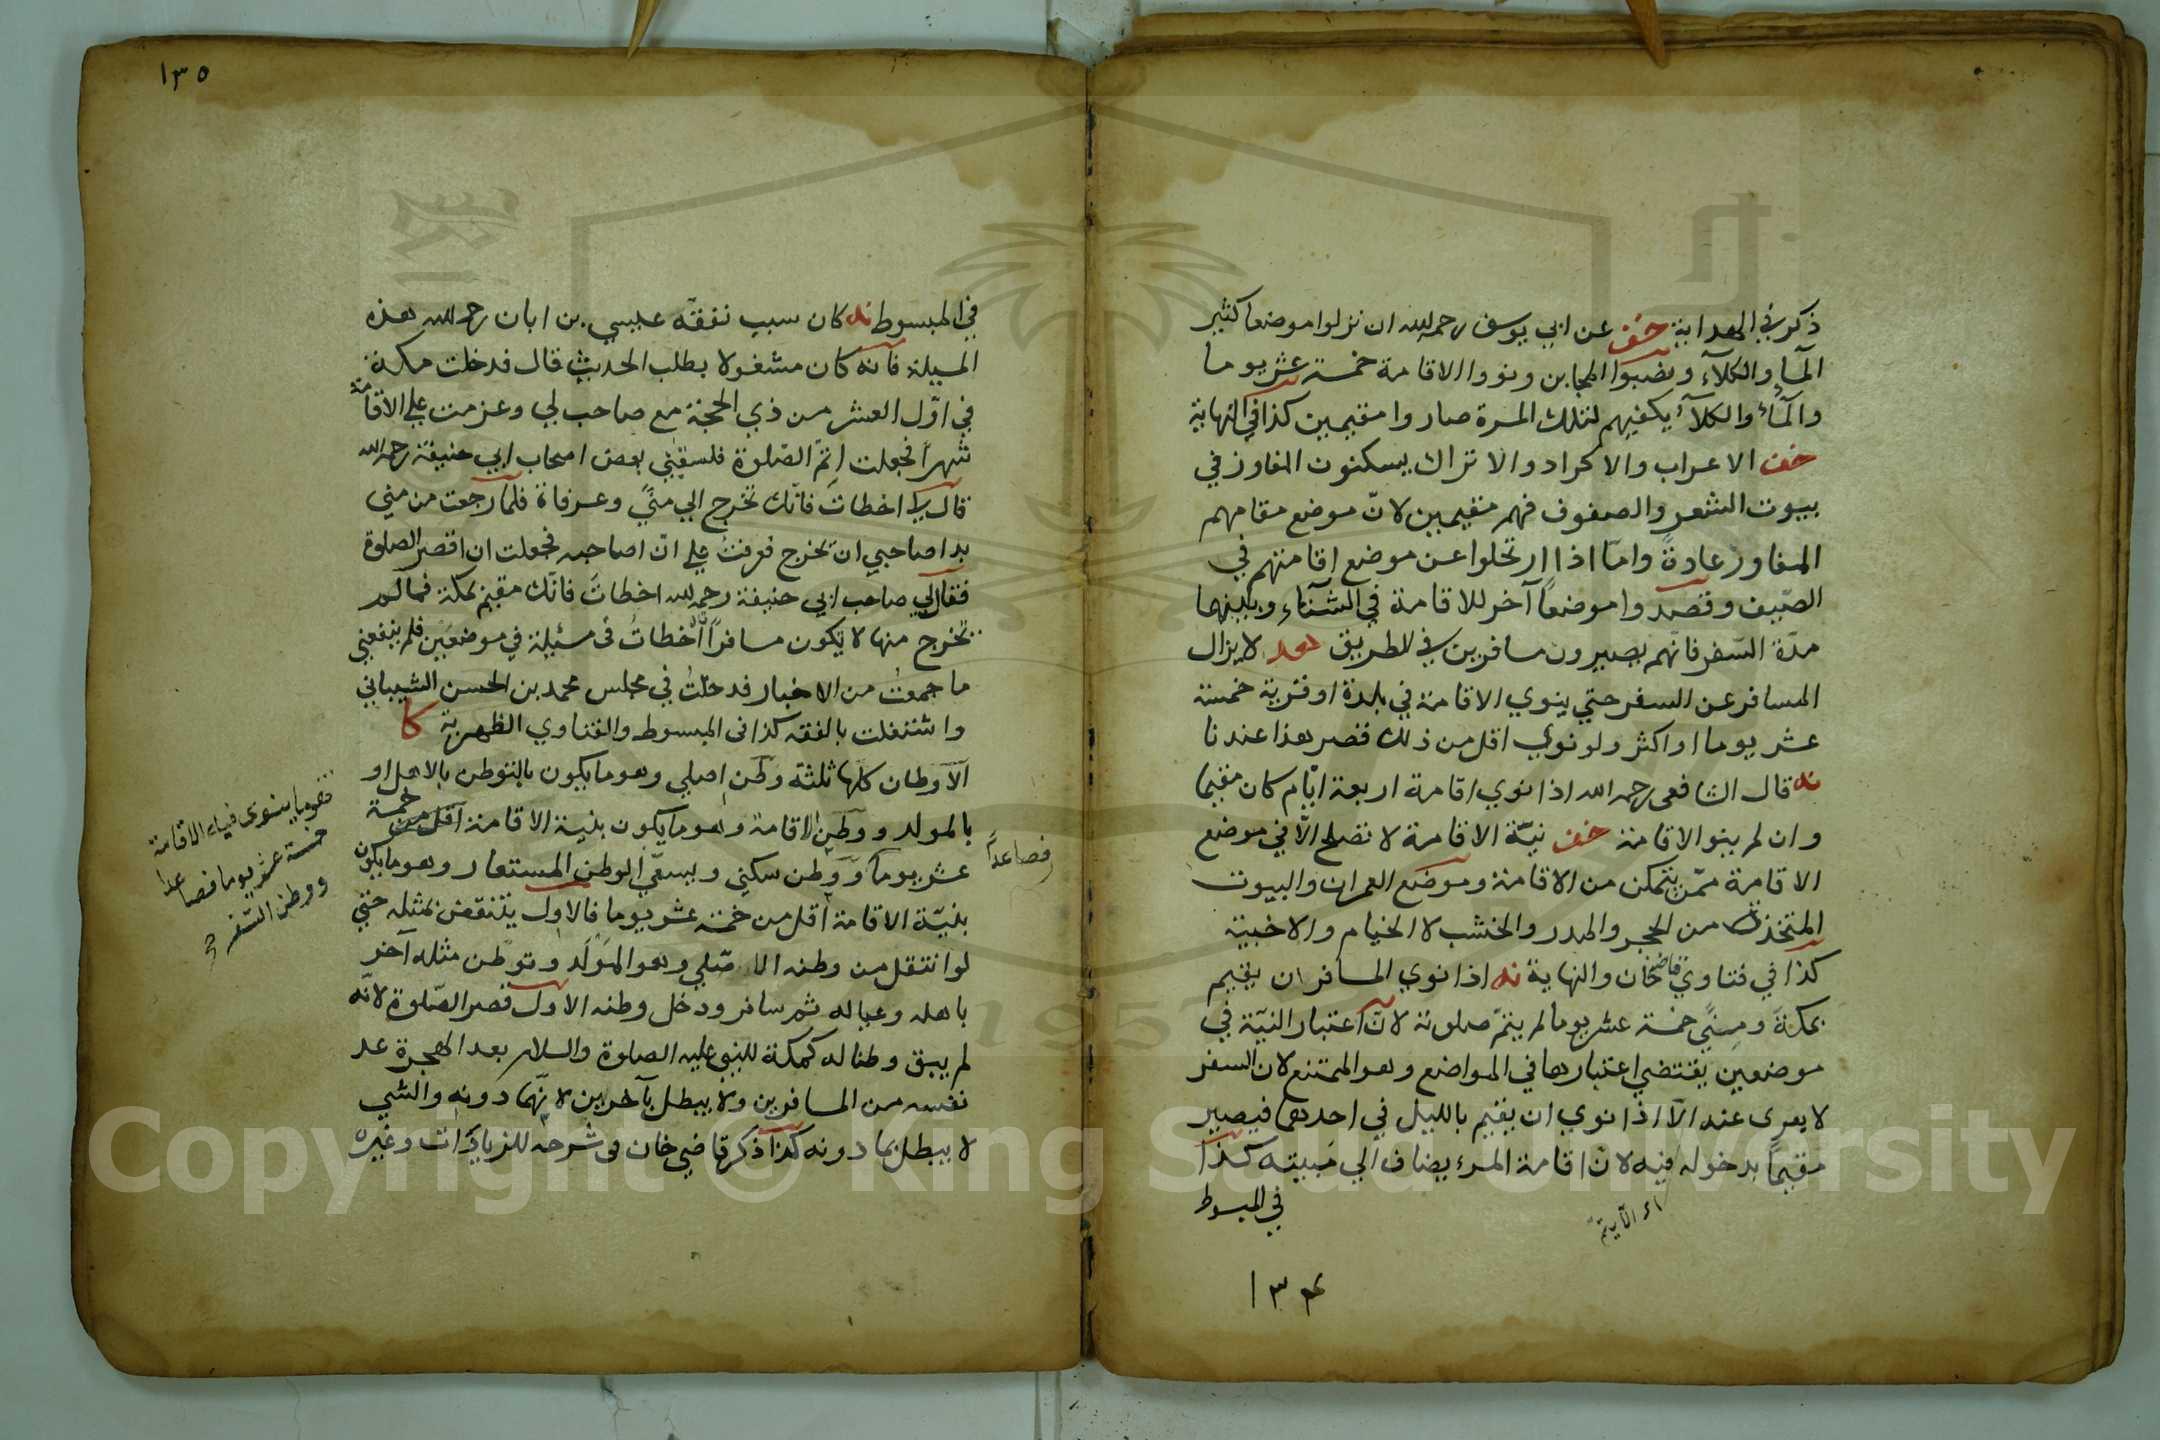 ذكر في الهداية خف عن ابي يوسف رحمه الله ان نزلوا موضعا كثير
المآء والكلآء ونصبوا الخبا بن ونووا الاقامة خمسة عشر يوما
والمآء والكلآء يكفيهم لتلك المدة صاروا مقيمين كذا في النهاية
خف الاعراب والاكراد والاتراك يسكنون المفاوز في
بيوت الشعر والصفوف فهم مقيمين لانّ موضع مقامهم
المفاوز عادةً وامّا اذا ارتحلوا عن موضع اقامتهم في
الصّيف وقصدوا موضعاً آخر للاقامة في الشتآء وبينهما
مدّة السّفر فانّهم يصيرون مسافرين في الطريق هد لا يزال
المسافر عن السفر حتي ينوي الاقامة في بلدة او قرية خمسة
عشر يوما او اكثر ولو نوي اقل من ذلك قصر هذا عندنا
نه قال الشافعى رحمه الله اذا نوي اقامة اربعة ايّام كان مقيما
وان لم ينو الاقامة خف نيّة الاقامة لا تصلح الّا في موضع
الاقامة ممّن يتمكن من الاقامة وموضع العمران والبيوت
المتخذة من الحجر والمدر والخشب لا الخيام والاخبية
كذا في فتاوي قاضيخان والنهاية نه اذا نوي المسافر ان يقيم
بمكة ومنًي خمسة عشر يوما لم يتمّ صلوته لانّ اعتبار النيّة في
موضعين يقتضي اعتبارها في المواضع وهو الممتنع لان السفر
لا يعرى عنه الّا اذا نوي ان يقيم بالليل في احديهما فيصير
مقيماً بدخوله فيه لانّ اقامة المرء يضاف الي مبيته كذا
في المبسوط
١٣٤
١٣٥
في المبسوط نه كان سبب تفقّه عيسي بن ابان رحمه الله هذه
المسيلة فانه كان مشغولا بطلب الحديث قال فدخلت مكة
في اوّل العشر من ذي الحجة مع صاحب لي وعزمت علي الاقامة
شهراً فجعلت اتمّ الصّلوة فلقيني بعض اصحاب ابي حنيفة رحمه الله
قال لي اخطات فانّك تخرج الي منًي وعرفاة فلمّا رجعت من مني
بدا صاحبي ان يخرج فعرفت علي انّ اصاحبه فجعلت ان اقصر الصلوة
فقال لي صاحب ابي حنيفة رحمه الله اخطات فانّك مقيم بمكة فما لم
تخرج منها لا يكون مسافراً اخطات فى مسئلة في موضعين فلم ينفعني
ما جمعت من الاخبار فدخلت في مجلس محمد بن الحسن الشيباني
واشتغلت بالفقه كذا فى المبسوط والفتاوي الظهرية كا
الاوطان كلّها ثلثة وطن اصلي وهو ما يكون بالتوطن بالاهل او
بالمولد ووطن الاقامة وهو ما يكون بنية الاقامة اقل من خمسة
عشر يوما ووطن سكني ويسمّي الوطن المستعار وهو ما يكون
فصاعداً
بنيّة الاقامة اقل من خمسة عشر يوما فالاول ينتقض بمثله حتي
لو انتقل من وطنه الاصلي وهو المولد وتوطن مثله آخر
باهله وعياله ثم سافر ودخل وطنه الاول قصر الصّلوة لانّه
لم يبق وطنا له كمكة للنبي عليه الصلوة والسلام بعد الهجرة عد
نفسه من المسافرين ولا يبطل بآخرين لانّهما دونه والشي
لا يبطل بما دونه كذا ذكر قاضي خان فى شرحه للزيادات وغيره
فهو ما ينوى فيها الاقامة
خمسة عشر يوما فصاعدا
ووطن السّفر
Copyright © King Saud University
1957